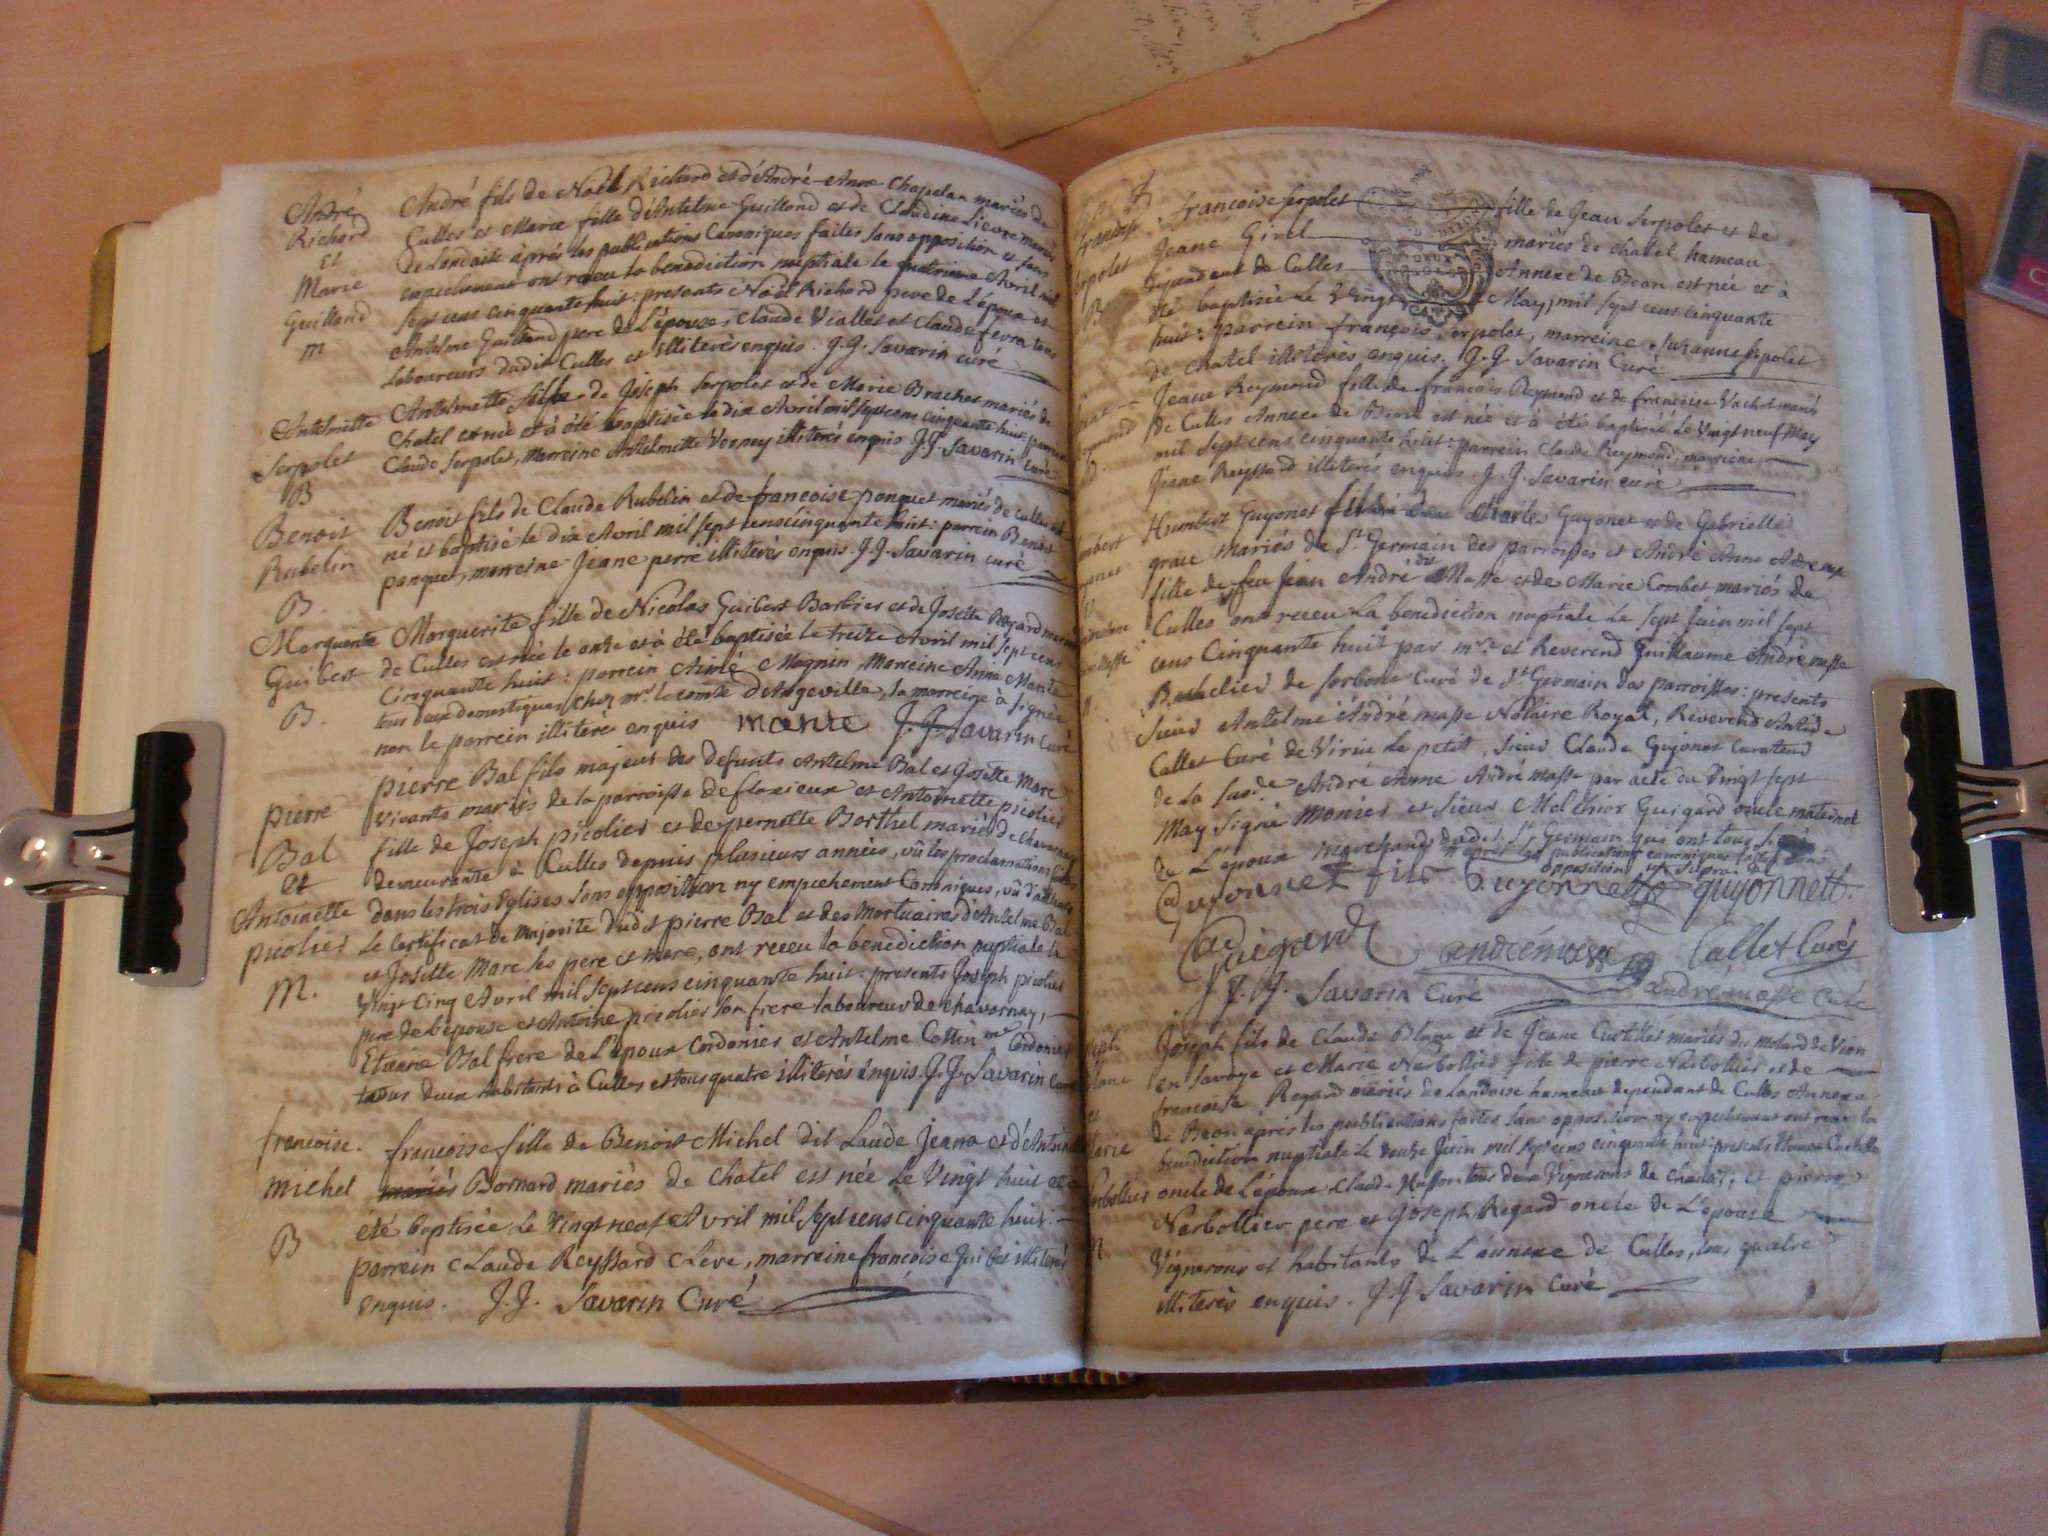 André
Richard
et
Marie
Guilland
m
André fils de Noël Richard et d'André Anne Chapelan mariés de
Culles et Marie fille d'Antelme Guilland et de Claudine Lievre mariés
de Landaise après les publications Canoniques faites sans opposition et sans
empechement ont receu la benediction nuptiale le quatrieme Avril mil
sept cens cinquante huit: presents Noël Richard pere de L'époux et
Antelme Guilland pere de L'épouse, Claude Viallet et Claude fevre tous
Laboureurs dudit Culles et illiterés enquis. J.J. Savarin curé
Antelmette
Serpolet
B
Antelmette fille de Joseph Serpolet et de Marie Brachet mariés de
Chatel est née et à été baptisée le dix Avril mil sept cens cinquante huit: parrein
Claude Serpolet, Marreine Antelmette Vorney illiterés enquis J.J. Savarin curé
Benoit
Rubelin
B.
Benoit fils de Claude Rubelin et de francoise ponquet mariés de Culles est
né et baptisé le dix Avril mil sept cens cinquante huit: parrein Benoit
ponquet, marreine Jeane perre illiterés enquis. J.J. Savarin curé
Marguerite
Guibert
B.
Marguerite fille de Nicolas Guibert Barbier et de Josette Regard mariés
de Culles est née le onze et à été baptisée le treize Avril mil sept cens
Cinquante huit: parrein Aimé Magnin Marreine Anne Marie
tous deux domestiques chez mr. le comte d'Angeville, la marreine à signée
non le parrein illiteré enquis manue J.J. Savarin curé
pierre
Bal
et
Antoinette
picolier
M.
pierre Bal fils majeur des defunts Antelme Bal et Josette Marc
vivants mariés de la parroisse de flaxieux et Antoinette picolier
fille de Joseph picolier et de pernette Borthel mariés de Chavornay
demeurante à Culles depuis plusieurs années, vû les proclamations faites
dans les trois Eglises sans opposition ny empechement Canoniques, vû d'ailleurs
Le Certificat de Majorité dudit pierre Bal et des Mortuaires d'Antelme Bal
et Josette Marc les pere et mere, ont receu la benediction nuptiale le
Vingt Cinq Avril mil sept cens cinquante huit: presents Joseph picolier
pere de L'épouse et Antoine picolier son frere laboureurs de chavornay,
Etienne Bal frere de L'époux Cordonier et Antelme Cottin me Cordonier
tous deux habitants à Culles et tous quatre illiterés enquis. J.J. Savarin Curé
francoise.
michel
B
francoise fille de Benoit Michel dit Laude Jeana et d'Antoinette
mariés Bornard mariés de Chatel est née Le Vingt huit et à
été baptisée Le Vingt neuf Avril mil sept cens cinquante huit:
parrein Claude Reyssard Cleve, marreine francoise Guibet illiterés
enquis. J.J. Savarin Curé
francoise Serpolet fille de Jean Serpolet et de
Jeane Girel mariés de chatel hameau
dependant de Culles Annexe de Béon est née et à
été baptisée Le Vingt May, mil sept cens cinquante
huit: parrein francois serpolet, marreine Suzanne Serpolet
de chatel illiterés enquis. J.J. Savarin Curé
Jeane Reymond fille de francois Reymond et de francoise Vachet mariés
de Culles Annexe de Béon est née et à été baptisée Le Vingt neuf May
mil sept cens cinquante huit: parrein Claude Reymond, marreine
Jeane Reyssard illiterés enquis. J.J. Savarin curé
Humbert Guyonet fils de Charles Guyonet et de Gabrielle
grau mariés de St. Germain des parroisses et André Anne André
fille de feu Jean André dit Masse et de Marie Combet mariés de
Culles ont receu La benediction nuptiale le sept Juin mil sept
cens Cinquante huit par mre. et Reverend Guillaume André masse
Bachelier de sorbone curé de St Germain des parroisses: presents
Sieur Antelme André masse Notaire Royal, Reverend Antide
Callet Curé de Viriu le petit, sieur Claude Guyonet curateur
de La susde André Anne André masse par acte du Vingt sept
May signé Monier et sieur Melchior Guigard oncle maternel
de L'époux marchand dudit St Germain qui ont tous signé
n aprés les publications canoniques faites sans
opposition
Guyonnet fils Guyonnet guyonnett.
Guigard andrémasse Callet Curé
J.J. Savarin Curé andré masse Curé
Joseph fils de Claude Blanc et de Jeane Curtillet mariés du Molard de Vion
en Savoye et Marie Narbollier fille de pierre Narbollier et de
francoise Regard mariés de Landaise hameau dependant de Culles Annexe
de Béon après les publications faites sans opposition ny empechement ont receu la
benediction nuptiale Le douze Juin mil sept cens cinquante huit: presents
oncle de L'époux Claude tous deux Vignerons de et pierre
Narbollier pere et Joseph Regard oncle de L'épouse
Vignerons et habitants de L'annexe de Culles, tous quatre
illiterés enquis. J.J Savarin Curé